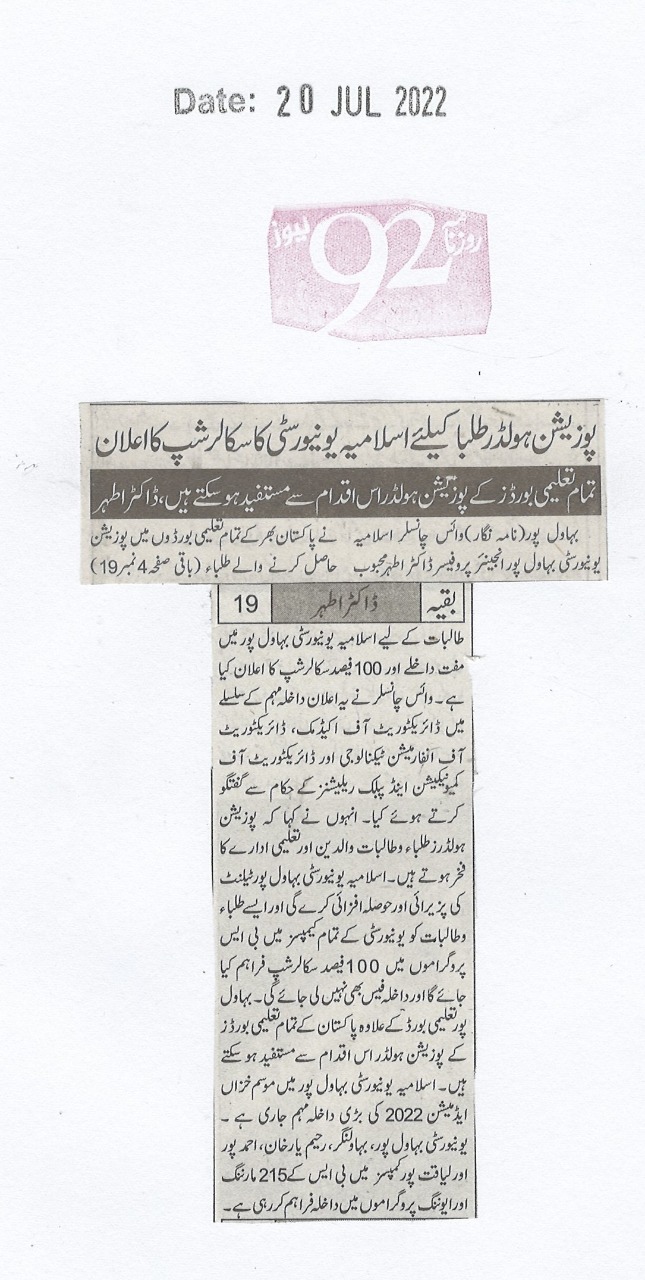 Date: 20 JUL 2022
روزنامہ 92 نیوز
پوزیشن ہولڈر طلبا کیلئے اسلامیہ یونیورسٹی کا سکالرشپ کا اعلان
تمام تعلیمی بورڈز کے پوزیشن ہولڈر اس اقدام سے مستفید ہو سکتے ہیں، ڈاکٹر اطہر
بہاول پور(نامہ نگار)وائس چانسلر اسلامیہ
یونیورسٹی بہاول پور انجینئر پروفیسر ڈاکٹر اطہر محبوب
نے پاکستان بھر کے تمام تعلیمی بورڈوں میں پوزیشن
حاصل کرنے والے طلباء (باقی صفحہ 4 نمبر 19)
بقیہ ڈاکٹر اطہر 19
طالبات کے لیے اسلامیہ یونیورسٹی بہاول پور میں
مفت داخلے اور 100 فیصد سکالرشپ کا اعلان کیا
ہے۔ وائس چانسلر نے یہ اعلان داخلہ مہم کے سلسلے
میں ڈائریکٹوریٹ آف اکیڈمک، ڈائریکٹوریٹ
آف انفارمیشن ٹیکنالوجی اور ڈائریکٹوریٹ آف
کمیونیکیشن اینڈ پبلک ریلیشنز کے حکام سے گفتگو
کرتے ہوئے کیا۔ انہوں نے کہا کہ پوزیشن
ہولڈرز طلباء وطالبات والدین اور تعلیمی ادارے کا
فخر ہوتے ہیں۔ اسلامیہ یونیورسٹی بہاول پور ٹیلنٹ
کی پزیرائی اور حوصلہ افزائی کرے گی اور ایسے طلباء
وطالبات کو یونیورسٹی کے تمام کیمپسز میں بی ایس
پروگراموں میں 100 فیصد سکالرشپ فراہم کیا
جائے گا اور داخلہ فیس بھی نہیں لی جائے گی۔ بہاول
پور تعلیمی بورڈ کے علاوہ پاکستان کے تمام تعلیمی بورڈز
کے پوزیشن ہولڈر اس اقدام سے مستفید ہو سکتے
ہیں۔ اسلامیہ یونیورسٹی بہاول پور میں موسم خزاں
ایڈمیشن 2022 کی بڑی داخلہ مہم جاری ہے ۔
یونیورسٹی بہاول پور، بہاولنگر، رحیم یار خان، احمد پور
اور لیاقت پور کیمپسز میں بی ایس کے 215 مارننگ
اور ایوننگ پروگراموں میں داخلہ فراہم کر رہی ہے۔